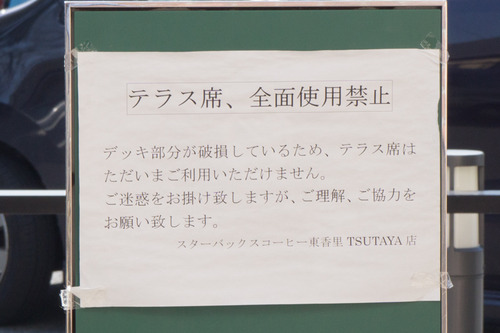 テラス席、全面使用禁止
デッキ部分が破損しているため、テラス席は
ただいまご利用いただけません。
ご迷惑をお掛け致しますが、ご理解、ご協力を
お願い致します。
スターバックスコーヒー東香里 TSUTAYA 店